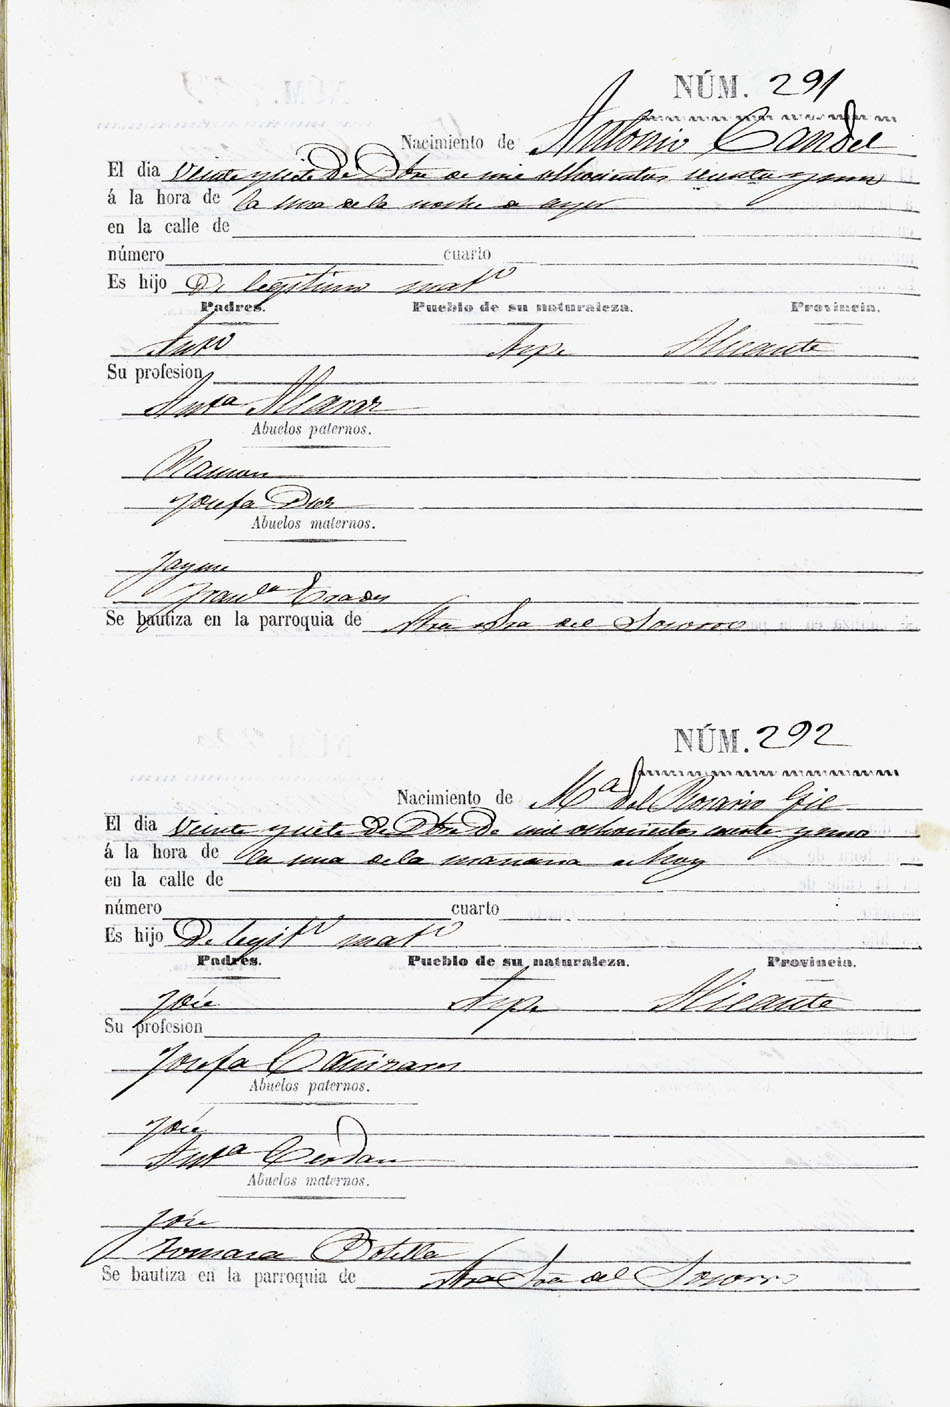 NÚM. 291
Nacimiento de Antonio Candel
El dia veinte y siete De Dbre de mil ochocientos y uno
á la hora de la una de la noche a ayer
en la calle de
número cuarto
Es hijo De legitimo matº
Padres. Pueblo de su naturaleza. Provincia.
Antº Aspe Alicante
Su profesion
Antª Alcaraz
Abuelos paternos.
Ramon
Josefa Diez
Abuelos maternos.
Jayme
Franᶜᵃ Prades
Se bautiza en la parroquia de Ntra Sra del Socorro
NÚM. 292
Nacimiento de Mª del Rosario Gil
El dia veinte y siete De Dbre De mil ochocientos y uno
á la hora de la una de la manana de Hoy
en la calle de
número cuarto
Es hijo De legitº matº
Padres. Pueblo de su naturaleza. Provincia.
José Aspe Alicante
Su profesion
Josefa Cañizares
Abuelos paternos.
José
Antª Cerdan
Abuelos maternos.
José
Tomasa Botella
Se bautiza en la parroquia de Ntra Sra del Socorro